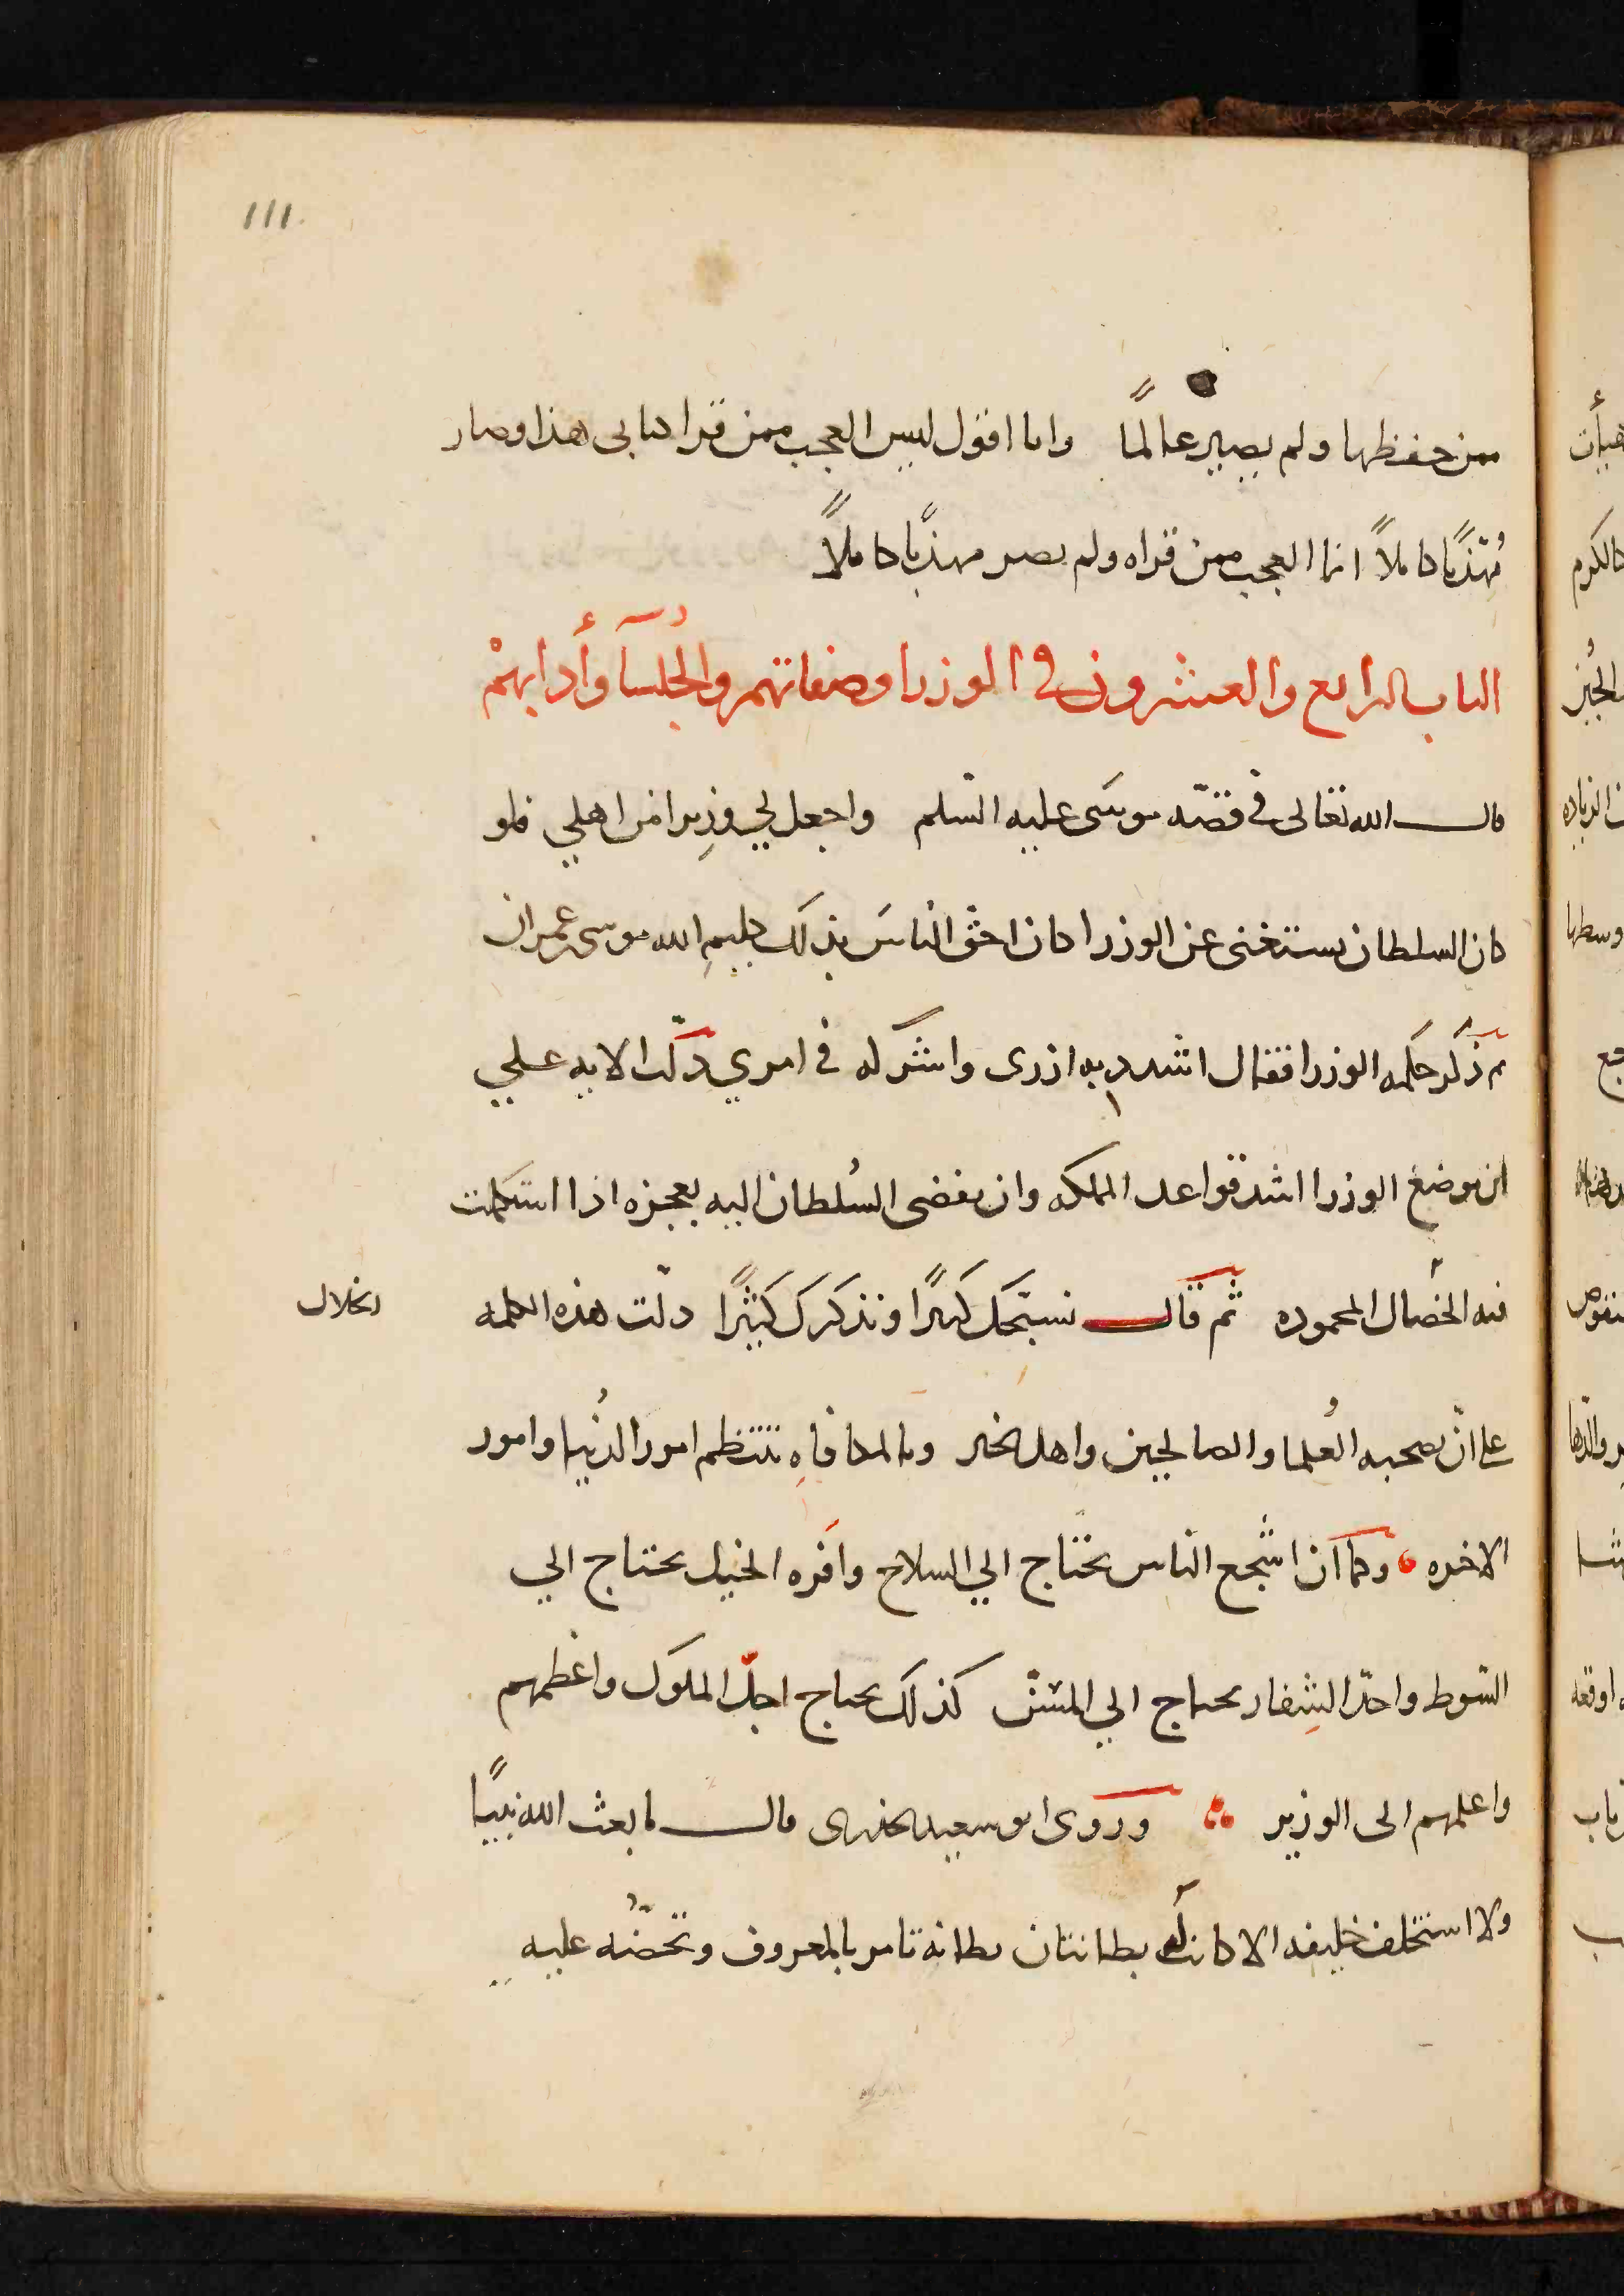 111
ممن حفظها ولم يصير عالمًا وانا اقول ليس العجب ممن قرا كتابى هذا وصار
مُهذّبًا كاملاً انما العجب ممن قراه ولم يصر مهذّبًا كاملاً
الباب الرابع والعشرون في الوزرا وصفاتهم والجُلسآ وأدابهمْ
قال الله تعالى في قصّه موسَى عليه السّلم واجعل لي وزِيرا من اهلي فلو
كان السلطان يستغنى عن الوزرا كان احقّ الناسَ بذلكَ كليمِ الله موسى عمران
ثم ذكر حكمه الوزرا فقال اشدد به ازرى واشركه في امري دلّت الايه علي
ان موضع الوزرا اشد قواعد المملكه وان يفضى السُلطان اليه بعجزه اذا استكملت
فيه الخصال المحموده ثم قال نسبّحك كثيرًا ونذكرك كثيرًا دلّت هذه الكلمه
الخلال
على انّ بصحبه العُلما والصالحين واهل الخير والمكافاهِ تنتظم امور الدُنيا وامور
الاخره وكما ان اشجع الناس يحتاج الي السلاح وافَره الخيل يحتاج الي
السّوط واحدّ الشِفار يحتاج الي المسَنّ كذلك يحتاج اجلّ الملوك واعظمهم
واعلمهم الى الوزير وروى ابو سعيد الخدرى قال ما بعث الله نبيًا
ولا استخلف خليفه الا كانت له بطانتان بطانه تامر بالمعروف وتحضّه عليه